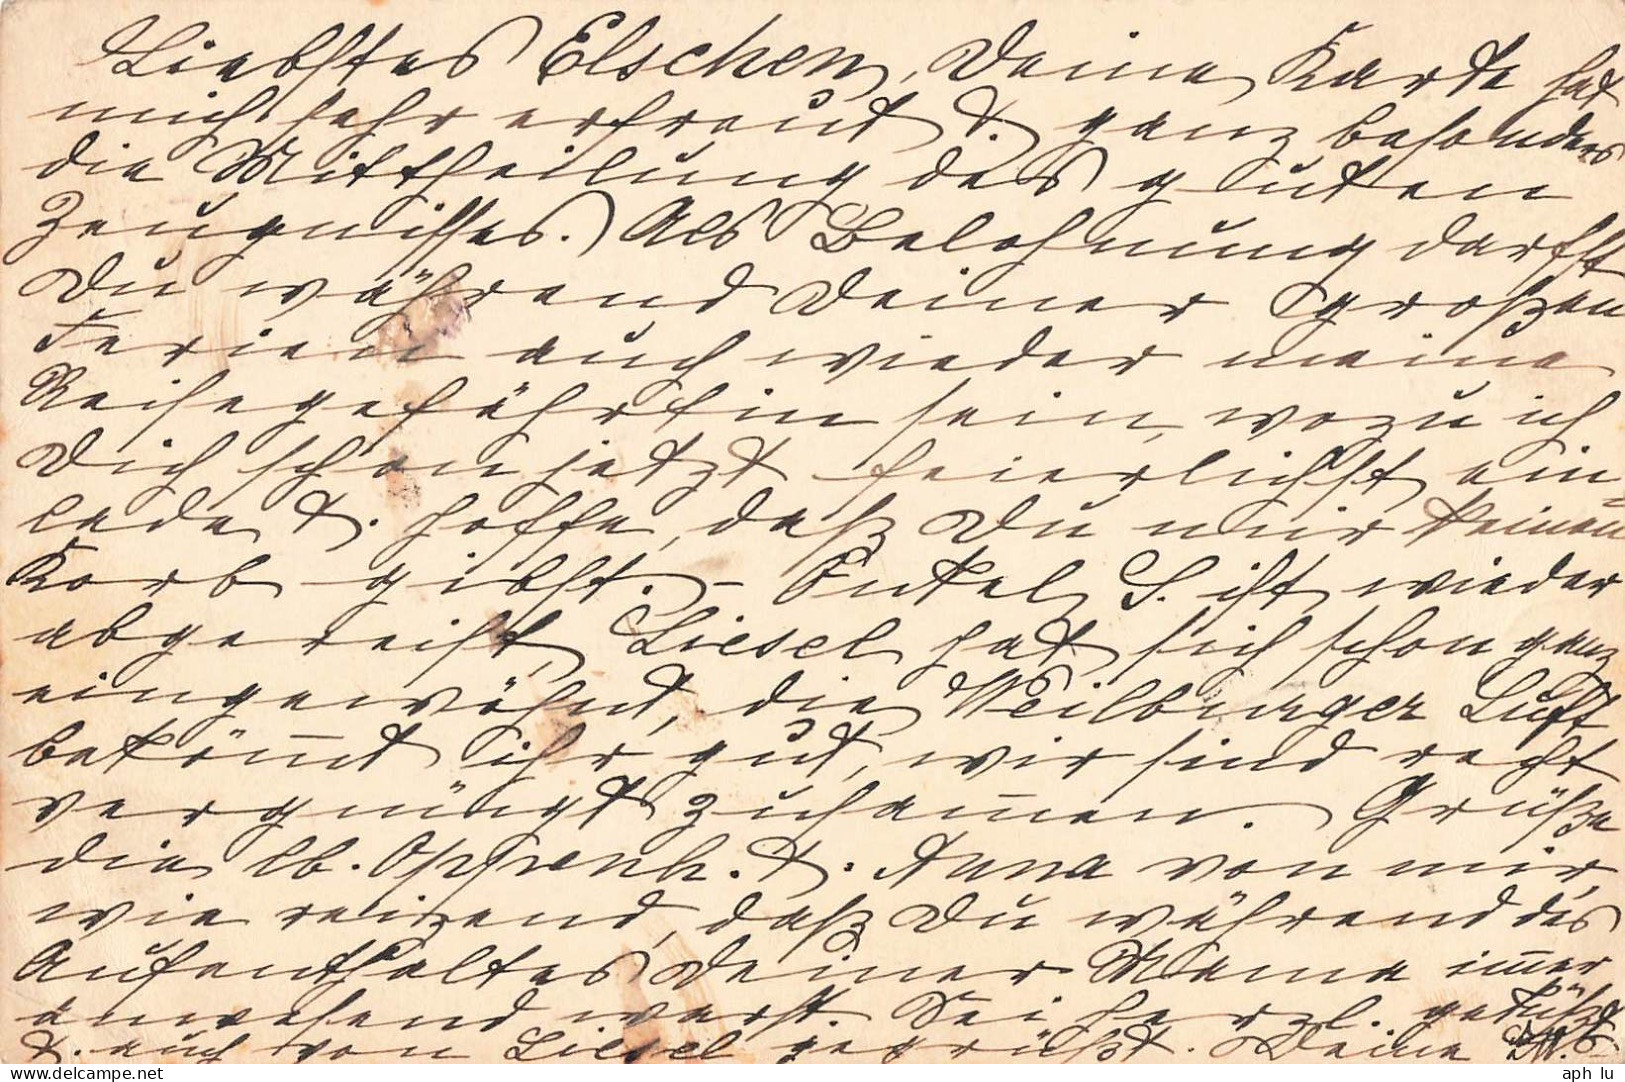 Liebstes Elschen, Deine Karte hat
mich sehr erfreut u. ganz besonders
die Mittheilung des guten
Zeugnisses. Als Belohnung darfst
Du während Deiner großen
Ferien auch wieder meine
Reisegefährtin sein, wozu ich
Dich schon jetzt feierlichst ein-
lade u. hoffe, daß Du mir keinen
Korb gibst. – Onkel S. ist wieder
abgereist, Liesel hat sich schon ganz
eingewöhnt, die Weilburger Luft
bekom̄t ihr gut, wir sind recht
vergnügt zusam̄en. Grüße
die lb. Oppenh. u. Anna von mir,
wie reizend, daß Du während des
Aufenthaltes Deiner Mama im̄er
anwesend warst. Sei herzl. geküßt
u. auch von Liesel gegrüßt. Deine M. S.
aph lu